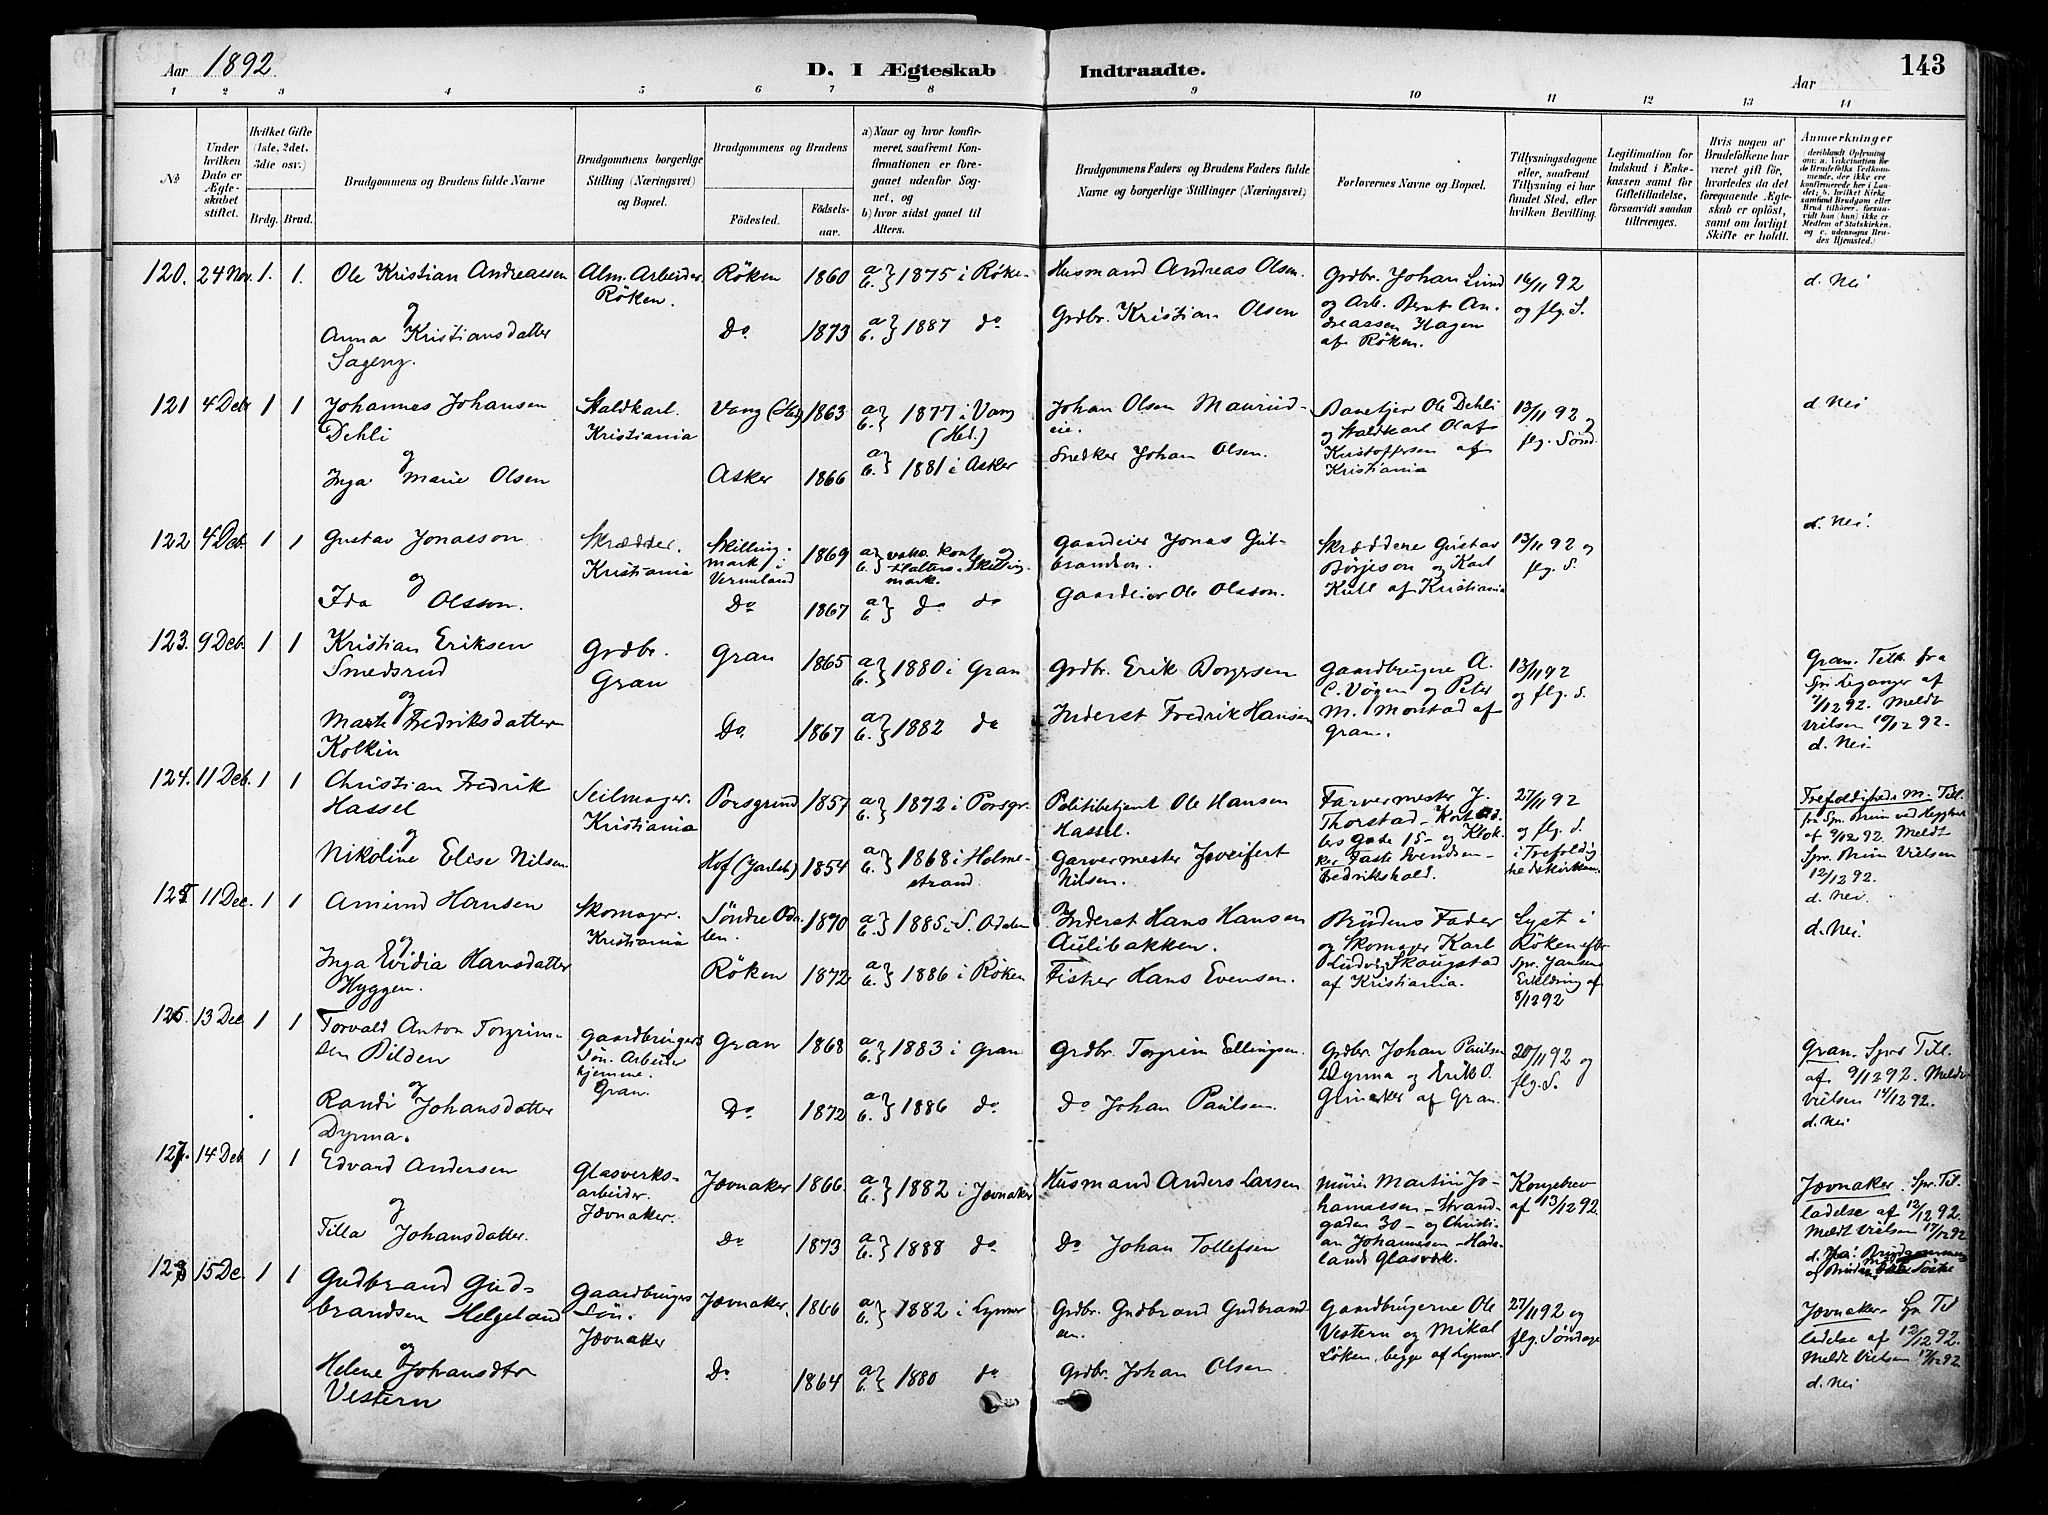 Aar 1892. D. I Ægteskab Indtraadte. Aar 143
1 2 3 4 5 6 7 8 9 10 11 12 13 14
No
Under hvilken Dato er Ægteskabet stiftet.
Hvilket Gifte (1ste, 2det, 3die osv.)
Brdg. Brud.
Brudgommens og Brudens fulde Navne
Brudgommens borgerlige Stilling (Næringsvei) og Bopæl.
Brudgommens og Brudens
Fødested. Fødselsaar.
a) Naar og hvor konfirmeret, saafremt Konfirmationen er foregaaet udenfor Sognet, og
b) hvor sidst gaaet til Alters.
Brudgommens Faders og Brudens Faders fulde Navne og borgerlige Stillinger (Næringsvei)
Forlovernes Navne og Bopæl.
Tillysningsdagene eller, saafremt Tillysning ei har fundet Sted, efter hvilken Bevilling.
Legitimation for Indskud i Enkekassen samt for Giftetilladelse, forsaavidt saadan tiltrænges.
Hvis nogen af Brudefolkene har været gift før, hvorledes da det foregaaende Ægteskab er opløst, samt om lovligt Skifte er holdt.
Anmærkninger
120. 24 Nov. 1. 1. Ole Kristian Andreassen Alm. Arbeider. Røken. Røken 1860 a b } 1875 i Røken Husmand Andreas Olsen. Grdbr. Johan Lund og Arb. Bernt Andreassen Hagen af Røken. 16/11 92 og flg. S. d. Nei
og
Anna Kristiansdatter Sageng. Do 1873 a b } 1887 do Grdbr. Kristian Olsen
121 4 Debr 1 1 Johannes Johansen Dehli Staldkarl. Kristiania Vang (Hed) 1863 a b. } 1877 i Vang (Hed.) Johan Olsen Maurudeie. Banebetjer Ole Dehli og Staldkarl Olaf Kristoffersen af Kristiania 13/11 92 flg. Sønd. d. Nei
og
Inga Marie Olsen Asker 1866 a b. } 1881 i Asker Snedker Johan Olsen.
122 4 Deb. 1 1 Gustav Jonasson Skrædder. Kristiania Skillingmark i Vermeland 1869 a b } vakc. konf og t. Alters i Skillingmark. Gaardeier Jonas Gulbrandson. Skrædderne Gustav Børjeson og Karl Kull af Kristiania 13/11 92 og flg. S. d. Nei.
og
Ida Olsson. Do 1867 a b } do do Gaardeier Ole Olsson.
123. 9 Deb. 1 1 Kristian Eriksen Smedsrud Grdbr. Gran Gran 1865 a b. } 1880 i Gran Grdbr. Erik Borgersen Gaardbrugerne A. C. Vøyen og Peter M. Morstad af Gran. 13/11 92 og flg. S. Gran. Till. fra Spr. Leganger af 7/12 92. Meldt Vielsen 10/12 92. d. Nei
og
Marte Fredriksdatter Kolkin Do. 1867 a b. } 1882 do Inderst Fredrik Hansen
124. 11 Deb. 1 1 Christian Fredrik Hassel Seilmager. Kristiania Porsgrund 1857 a b. } 1872 i Porsgr. Politibetjent Ole Hansen Hassel. Farvermester J. Thorstad - gate 15 - og Klokker Faste Svendsen - Fredrikshald. 27/11 92 og flg. S. i Trefoldighedskirken. Trefoldigheds M. Till. fra Spr. Brun af 9/12 92. Meldt Spr. Brun Vielsen 12/12 92. d. Nei
og
Nikoline Elise Nilsen Hof (Jarlsb) 1854 a b. } 1868 i Holmestrand. Garvermester Nilsen.
125 11 Dec. 1 1 Amund Hansen Skomager. Kristiania Søndre Odalen. 1870 a b. } 1885 i S. Odalen Inderst Hans Hansen Aulibakken. Brudens Fader og Skomager Karl Ludvig Skaugstad af Kristiania. Lyst i Røken efter Spr. Jansens Erklæring af 8/12 92 d. Nei
og
Inga Evidia Hansdatter Hyggen. Røken 1872 a b. } 1886 i Røken Fisker Hans Evensen.
126. 13 Dec 1 1 Torvald Anton Torgrimsen Bilden Gaardbrugers Søn. Arbeider hjemme. Gran. Gran 1868 a b. } 1883 i Gran Grdbr. Torgrim Ellingsen. Grdbr. Johan Paulsen Dyrma og Erik O. Glinerker af Gran. 20/11 92 og flg. S. Gran. Spr Till. af 9/12 92. Meldt Vielsen 14/12 92. d. Nei
og
Randi Johansdatter Dyrma. Do 1872 a b. } 1886 do Do Johan Paulsen.
127. 14 Deb 1 1 Edvard Andersen Glasverksarbeider. Jævnaker. Jævnaker 1866. a b. } 1882 i Jævnaker Husmand Anders Larsen Murer Martin Johannesen - Strandgaden 30 - og Christian Johannesen - Hadelands Glasværk. Kongebrev af 13/12 92. Jævnaker. Spr. Tilladelse af 12/12 92. Meldt Vielsen 17/12 92
og
Tilla Johansdatter. Do 1873 a b. } 1888 do Do Johan Tollefsen
128 15 De. 1 1 Gudbrand Gudbrandsen Helgeland Gaardbrugers Søn. Jævnaker Jævnaker. 1866 a b. } 1882 i Lynner Grdbr. Gudbrand Gudbrandsen. Gaardbrugerne Ole Vestern og Mikal Løken, begge af Lynner. 27/11 92 og flg. Søndage Jævnaker. Spr Tilladelse af 12/12 92. Meldt Vielsen 17/12 92 d. Nei
og
Helene Johansdtr Vestern Do 1864 a b. } 1880 do Grdbr. Johan Olsen